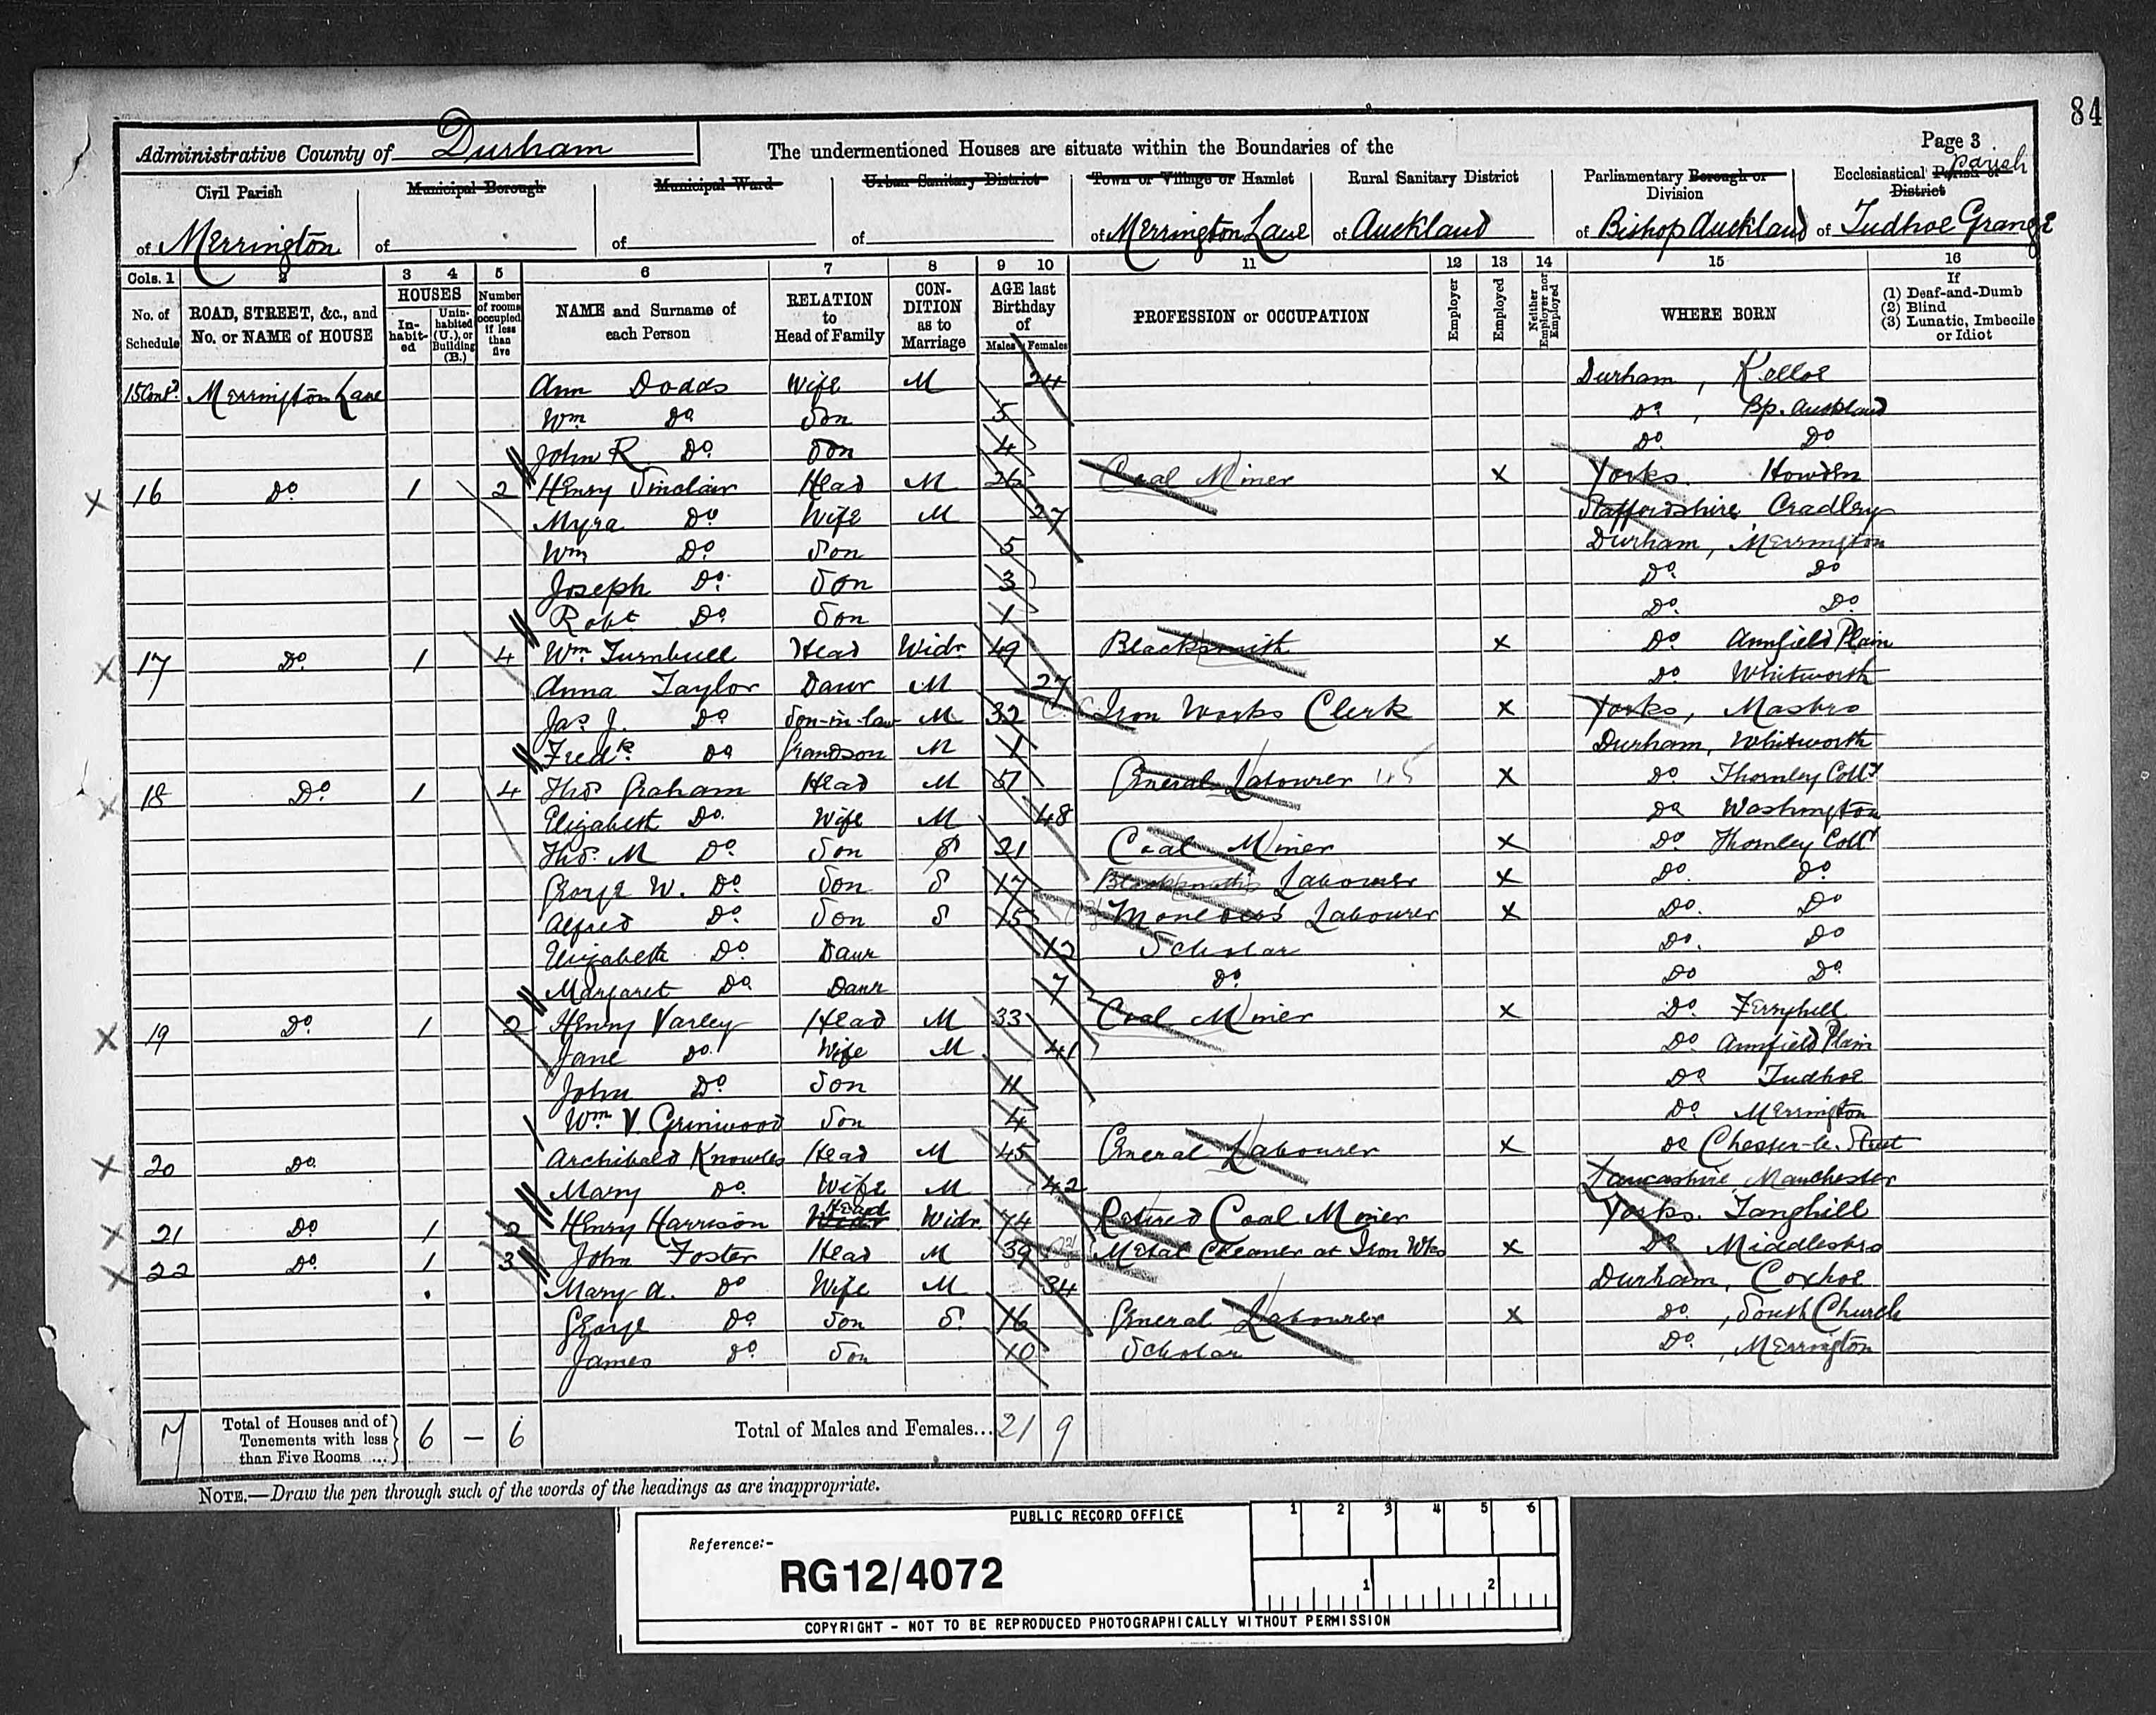 84
Administrative County of Durham
The undermentioned Houses are situate within the Boundaries of the
Page 3
Civil Parish of Merrington
Municipal Borough of
Municipal Ward of
Urban Sanitary District of
Town or Village or Hamlet of Merrington Lane
Rural Sanitary District of Auckland
Parliamentary Borough or Division of Bishop Auckland
Ecclesiastical Parish or District parish of Tudhoe Grange
Cols. 1 2 3 4 5 6 7 8 9 10 11 12 13 14 15 16
No. of Schedule
ROAD, STREET, &c., and No. or NAME of HOUSE
HOUSES
Inhabited
Uninhabited (U.), or Building (B.)
Number of rooms occupied if less than five
NAME and Surname of each Person
RELATION to Head of Family
CONDITION as to Marriage
AGE last Birthday of
Males Females
PROFESSION or OCCUPATION
Employer
Employed
Neither Employer nor Employed
WHERE BORN
If (1) Deaf-and-Dumb (2) Blind (3) Lunatic, Imbecile or Idiot
15 Contd. Merrington Lane Ann Dodds Wife M 24 Durham, Kelloe
Wm Do Son 5 Do, Bp. Auckland
John R. Do Son 4 Do Do
X 16 Do 1 2 Henry Sinclair Head M 26 Coal Miner X Yorks. Howden
Myra Do Wife M 27 Staffordshire Cradley
Wm Do Son 5 Durham, Merrington
Joseph Do Son 3 Do Do
Robt. Do Son 1 Do Do
X 17 Do 1 4 Wm Turnbull Head Widr. 49 Blacksmith X Do Annfield Plain
Anna Taylor Daur M 27 Do Whitworth
Jas. J. Do Son-in-law M 32 Iron Works Clerk X Yorks, Masbro
Fredk. Do Grandson M 1 Durham, Whitworth
X 18 Do 1 4 Thos Graham Head M 51 General Labourer 45 X Do Thornley Colly
Elizabeth Do Wife M 48 Do Washington
Thos. M Do Son S 21 Coal Miner X Do Thornley Colly
George W. Do Son S 17 Blacksmiths Labourer X Do Do
Alfred Do Son S 15 Labourer X Do Do
Elizabeth Do Daur 12 Scholar Do Do
Margaret Do Daur 7 Do Do Do
X 19 Do 1 2 Henry Varley Head M 33 Coal Miner X Do Ferryhill
Jane Do Wife M 41 Do Annfield Plain
John Do Son 11 Do Tudhoe
Wm V. Grinwood Son 4 Do Merrington
X 20 Do Archibald Knowles Head M 45 General Labourer X Do Chester-le-Street
Mary Do Wife M 42 Lancashire, Manchester
X 21 Do 1 2 Henry Harrison Head Widr. 74 Retired Coal Miner Yorks. Tanghill
X 22 Do 1 3 John Foster Head M 39 Metal Cleaner at Iron Wks X Do Middlesbro
Mary A. Do Wife M 34 Durham, Coxhoe
George Do Son S. 16 General Labourer X Do, South Church
James Do Son 10 Scholar Do, Merrington
7 Total of Houses and of Tenements with less than Five Rooms ... 6 – 6 Total of Males and Females... 21 9
NOTE.—Draw the pen through such of the words of the headings as are inappropriate.
PUBLIC RECORD OFFICE
1 2 3 4 5 6
Reference:-
RG12/4072
1 2
COPYRIGHT - NOT TO BE REPRODUCED PHOTOGRAPHICALLY WITHOUT PERMISSION